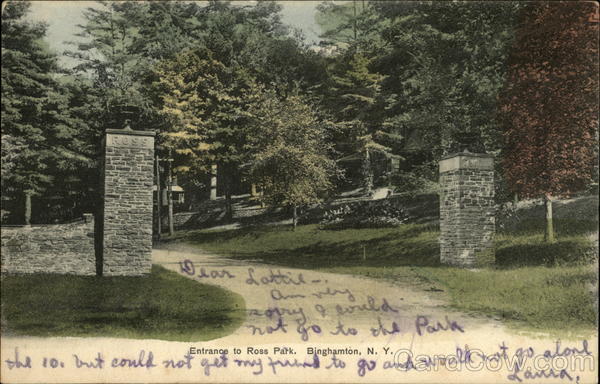 ROSS
Dear Lottie:-
Am very
sorry I could
not go to the Park
Entrance to Ross Park. Binghamton, N. Y.
the 10. but could not get my friend to go and not go alone
Laura,
CardCow.com